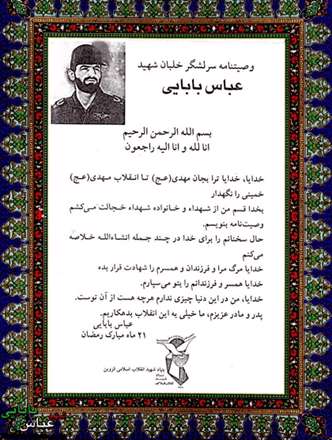 وصیتنامه سرلشگر خلبان شهید
عباس بابایی
بسم الله الرحمن الرحیم
انا لله و انا الیه راجعون
خدایا، خدایا ترا بجان مهدی(عج) تا انقلاب مهدی(عج)
خمینی را نگهدار
بخدا قسم من از شهداء و خانواده شهداء خجالت می‌کشم
وصیت‌نامه بنویسم.
حال سخنانم را برای خدا در چند جمله انشاءالله خلاصه
می‌کنم
خدایا مرگ مرا و فرزندان و همسرم را شهادت قرار بده
خدایا همسر و فرزندانم را بتو می‌سپارم.
خدایا، من در این دنیا چیزی ندارم هرچه هست از آن توست.
پدر و مادر عزیزم، ما خیلی به این انقلاب بدهکاریم.
عباس بابایی
۲۱ ماه مبارک رمضان
بنیاد شهید انقلاب اسلامی قزوین
بابایی
عباس